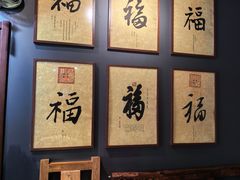 福 福 福
福 福 福